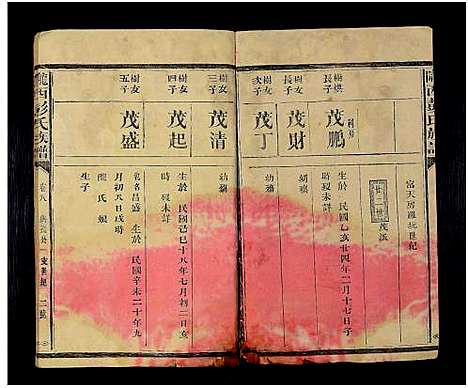 隴西彭氏族譜
富天房羅坑世紀
廿二世
茂浜
樹棋
長子
茂鵬
生於
民國乙亥廿四年二月十七日子
時歿未詳
樹友
長子
茂財
幼殤
次子
茂丁
幼殤
樹友
三子
茂清
幼殤
樹友
四子
茂起
生於民國己巳十八年七月初二日亥
時歿未詳
樹友
五子
茂盛
官名昌盛
生於
民國辛未二十年九
月初八日戌時
熊氏
生子
隴西彭氏族譜
卷八
支世紀
二